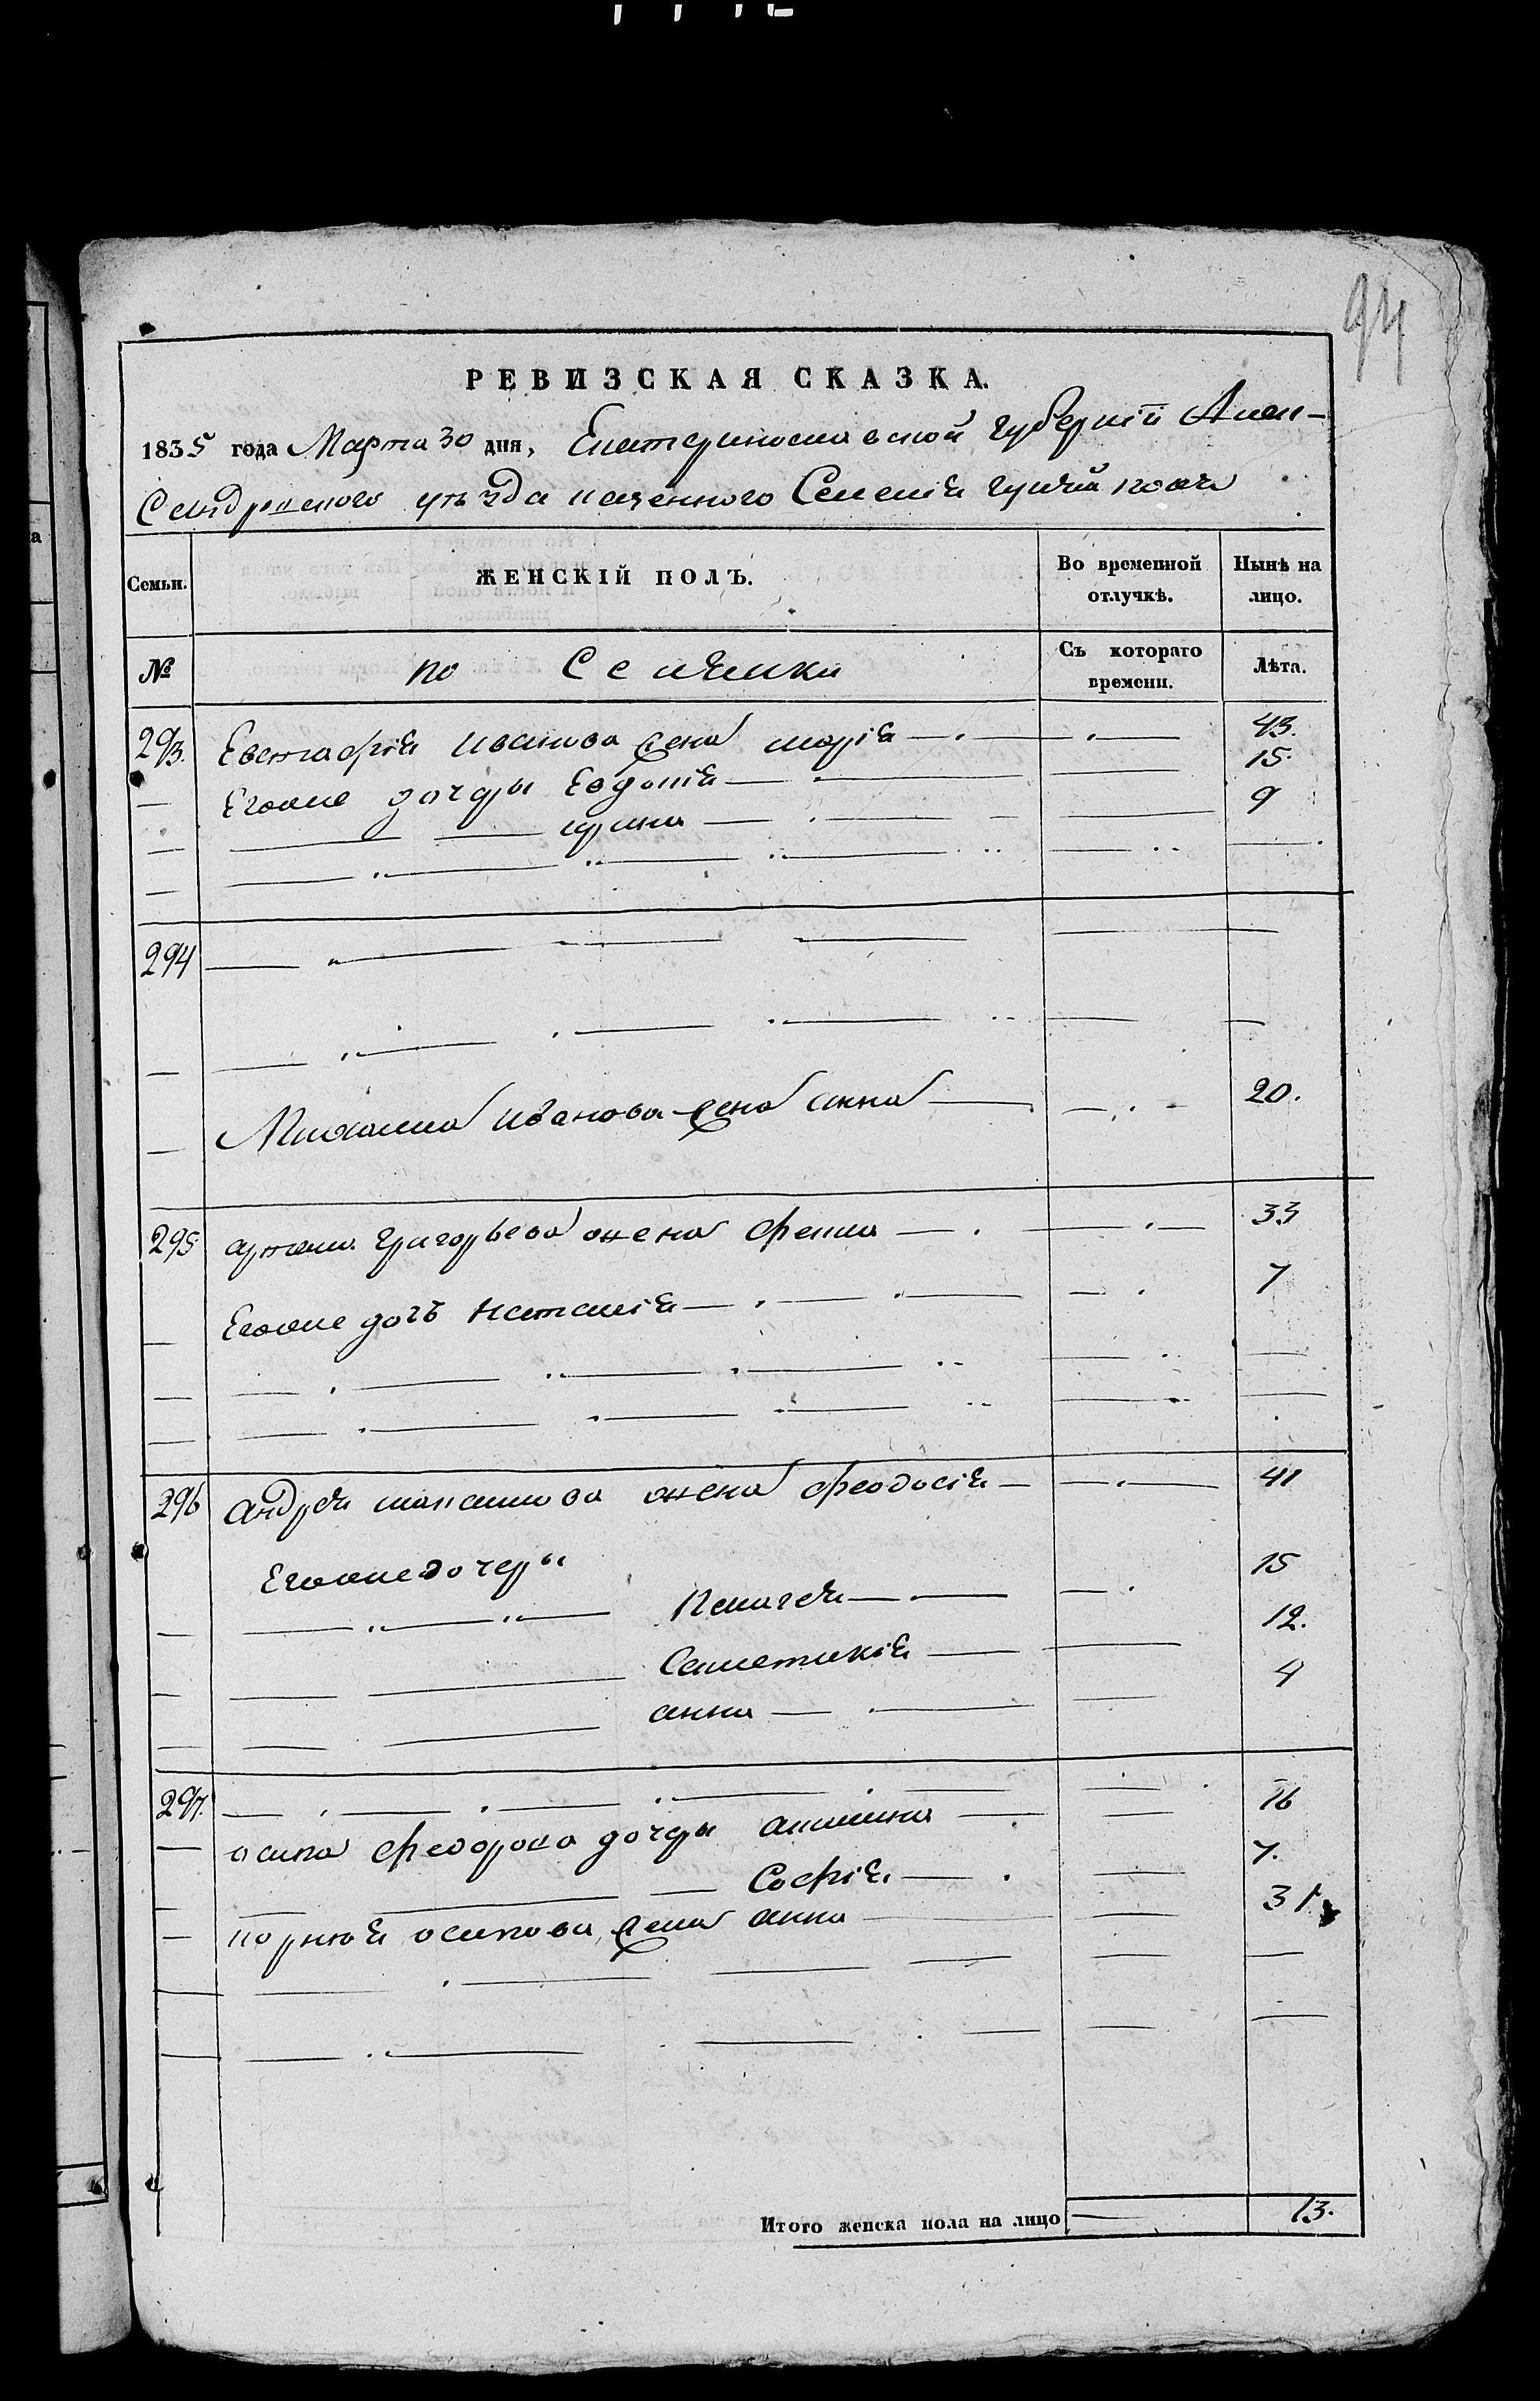 94
РЕВИЗСКАЯ СКАЗКА.
1835 года Марта 30 дня, Екатеринославской губернїи Алек-
сандровского уѣзда казенного Селенїя гуляй поля
Семьи. ЖЕНСКІЙ ПОЛЪ. Во временной отлучкѣ. Нынѣ на лицо.
№ по Съ котораго времени. Лѣта.
293. Евстафїя иванова жена марїя 43.
Егоже дочери Евдокїя 15.
ирина 9
294
Михаила иванова жена анна 20.
295 артема григорьева жена фекла 33
Егоже дочь наталїя 7
296 андрея максимова жена феодосїя 41
Егоже дочери
Пелагея 15
12.
анна 4
297.
осипа федорова дочери акилина 16
Софїя 7.
корнея осипова жена анна 31
Итого женска пола на лицо 13.